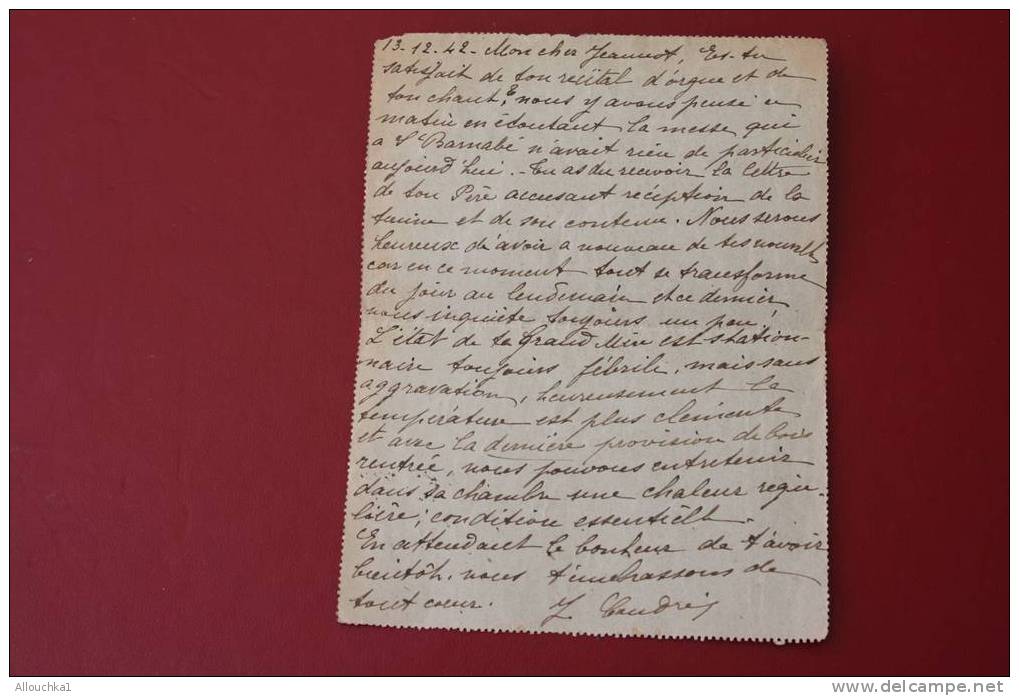 13-12-42- Mon cher Jeannot, Es-tu
satisfait de ton récital d'orgue et de
ton chant, nous y avons pensé ce
matin en écoutant la messe qui
a St Barnabé n'avait rien de particulier
aujourd'hui. - Tu as du recevoir la lettre
de ton Père accusant réception de la
et de son contenu. Nous serons
heureux d'avoir a nouveau de tes nouvelles
car en ce moment tout se transforme
du jour au lendemain et ce dernier
nous inquiète toujours un peu!
L'état de ta Grand Mère est station-
naire toujours fébrile, mais sans
aggravation, heureusement la
température est plus clémente
et avec la dernière provision de bois
rentrée, nous pouvons entretenir
dans sa chambre une chaleur régu-
lière; condition essentielle.
En attendant le bonheur de t'avoir
bientôt, nous t'embrassons de
tout coeur.
Allouchka1
www.delcampe.net